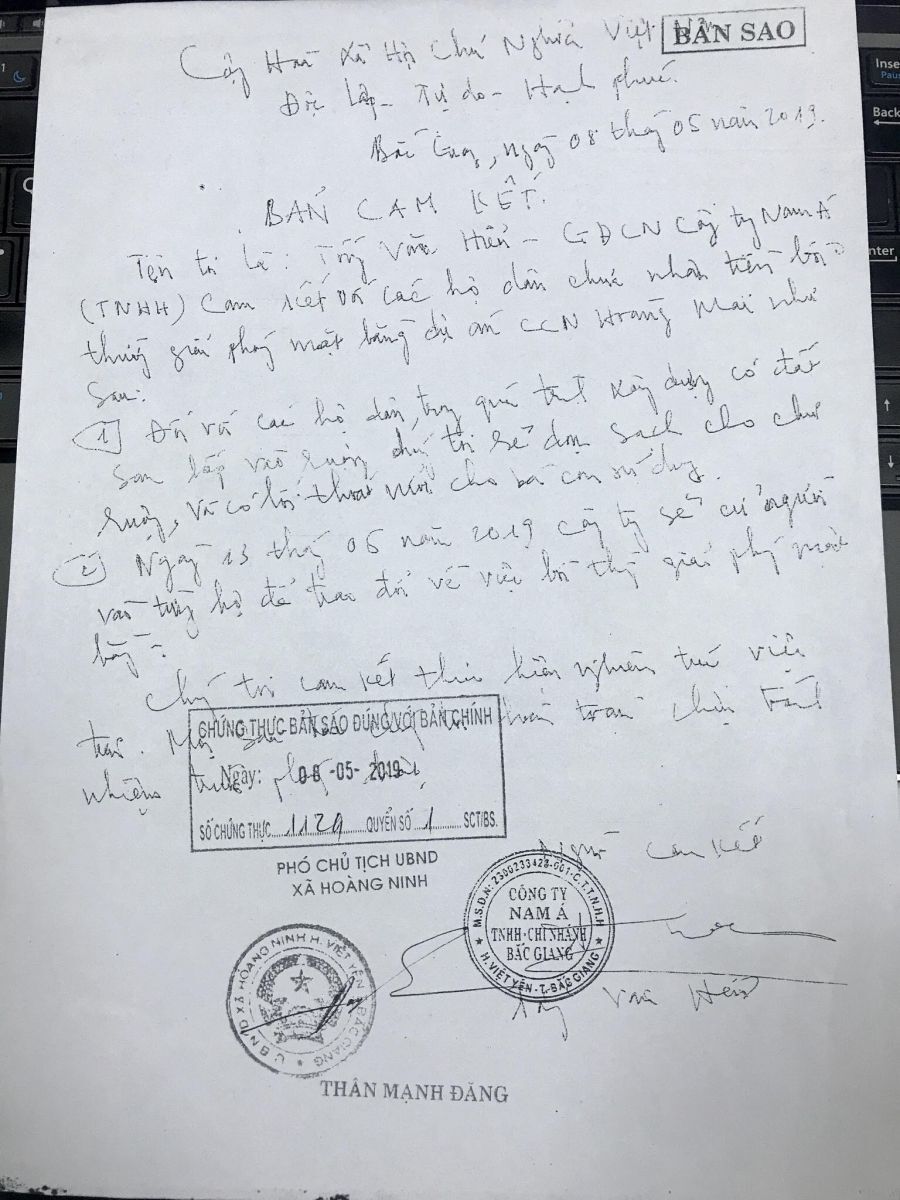 BẢN SAO
Cộng Hoà Xã Hội Chủ Nghĩa Việt Nam
Độc lập - Tự do - Hạnh phúc.
Bắc Giang, ngày 08 tháng 05 năm 2019.
BẢN CAM KẾT.
Tên tôi là: Tống Văn Hiến - GĐCN Công ty Nam Á
(TNHH) Cam kết với các hộ dân chưa nhận tiền bồi
thường giải phóng mặt bằng dự án CCN Hoàng Mai như
Sau:
1 Đối với các hộ dân, trong quá trình xây dựng có đất
san lấp vào ruộng chúng tôi sẽ dọn sạch cho chủ
ruộng, và có lối thoát nước cho bà con sử dụng.
2 Ngày 13 tháng 05 năm 2019 công ty sẽ cử người
vào từng hộ để trao đổi về việc bồi thường giải phóng mặt
bằng.
Chúng tôi cam kết thực hiện nghiêm túc việc
trên. hoàn toàn chịu trách
nhiệm trước pháp luật
CHỨNG THỰC BẢN SAO ĐÚNG VỚI BẢN CHÍNH
Ngày: 08-05-2019
SỐ CHỨNG THỰC 1129 QUYỂN SỐ 1 SCT/BS.
PHÓ CHỦ TỊCH UBND
XÃ HOÀNG NINH
Người Cam kết
M.S.D.N: 2300233423-001-C.T.T.N.H.H
CÔNG TY
NAM Á
TNHH-CHI NHÁNH
BẮC GIANG
H.VIỆT YÊN-T.BẮC GIANG
U.B.N.D XÃ HOÀNG NINH H. VIỆT YÊN BẮC GIANG
Tống Văn Hiến
THÂN MẠNH ĐĂNG